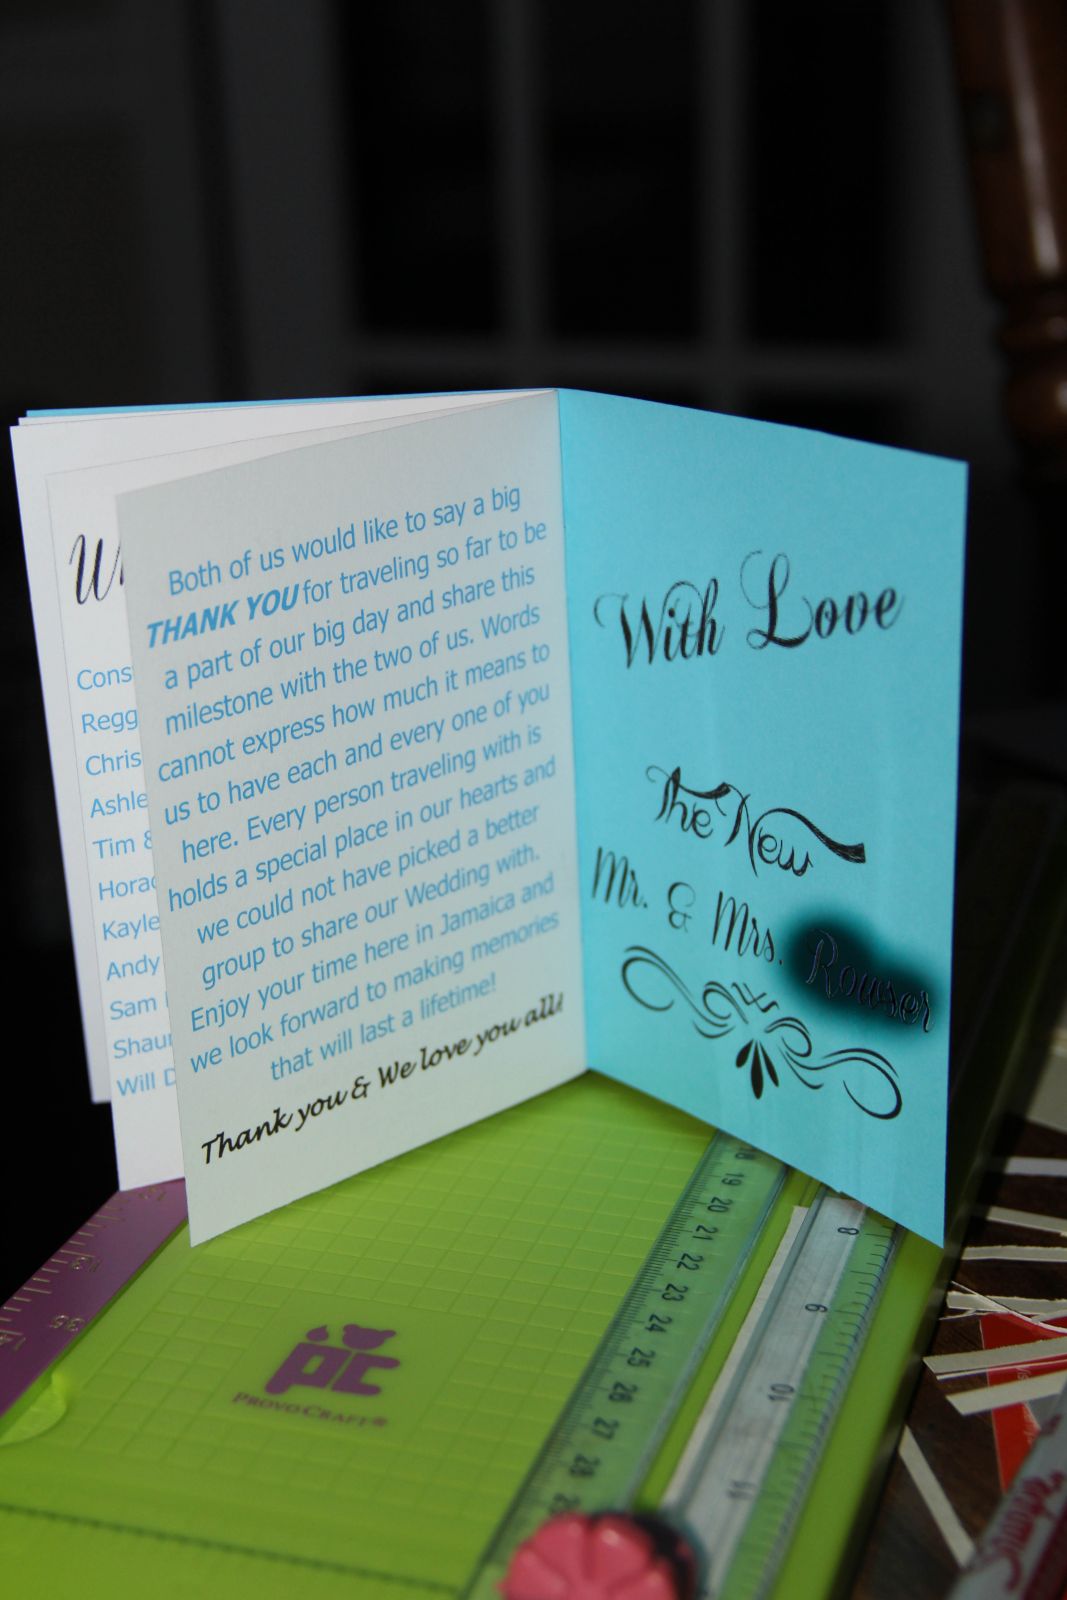 Both of us would like to say a big
THANK YOU for traveling so far to be
a part of our big day and share this
milestone with the two of us. Words
cannot express how much it means to
us to have each and every one of you
here. Every person traveling with is
holds a special place in our hearts and
we could not have picked a better
group to share our Wedding with.
Enjoy your time here in Jamaica and
we look forward to making memories
that will last a lifetime!
Thank you & We love you all!
With Love
The New
Mr. & Mrs. Rowser
Cons
Regg
Chris
Ashle
Tim &
Horac
Kayle
Andy
Sam
Shau
Will D
pc
PROVO CRAFT®
18
19
20
21
22
23
24
25
26
27
28
8
9
10
11
Sharpie